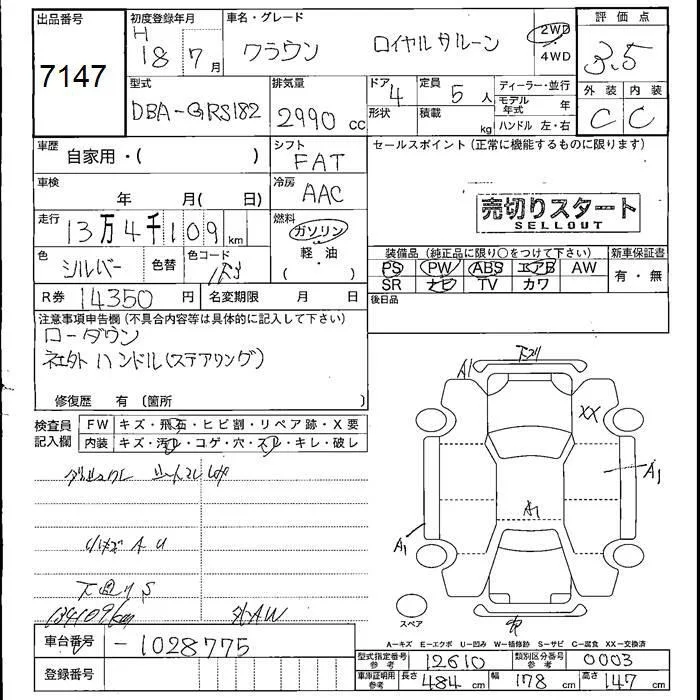 出品番号
7147
初度登録年月
H 18 7 月
車名・グレード
クラウン ロイヤルサルーン
2WD
・
4WD
評価点
3.5
外装 内装
C C
型式
DBA-GRS182
排気量
2990 cc
ドア
4
形状
定員
5 人
積載
kg
ディーラー・並行
モデル年式 年
ハンドル 左・右
車歴
自家用・( )
シフト
FAT
車検
年 月( 日)
冷房
AAC
走行
13万4千109 km
燃料
ガソリン
・
軽・油
( )
色
シルバー
色替
色コード
R券 14350 円
名変期限 月 日
セールスポイント (正常に機能するものに限ります)
売切りスタート
SELLOUT
装備品 (純正品に限り○をつけて下さい)
新車保証書
PS PW ABS エアB AW
SR ナビ TV カワ
有・無
後日品
注意事項申告欄 (不具合内容等は具体的に記入して下さい)
ローダウン
社外ハンドル(ステアリング)
修復歴 有 〔箇所 〕
検査員
記入欄
FW キズ・飛石・ヒビ割・リペア跡・X要
内装 キズ・汚レ・コゲ・穴・スレ・キレ・破レ
小キズ A U
下廻り S
134109km
外AW
A1
下廻り
XX
A1
A1
A1
スペア
A=キズ E=エクボ U=凹み W=補修跡 S=サビ C=腐食 XX=交換済
車台番号 -1028775
登録番号
型式指定番号
参考
12610
類別区分番号
参考
0003
車庫証明用
参考
長さ 484 cm
幅 178 cm
高さ 147 cm